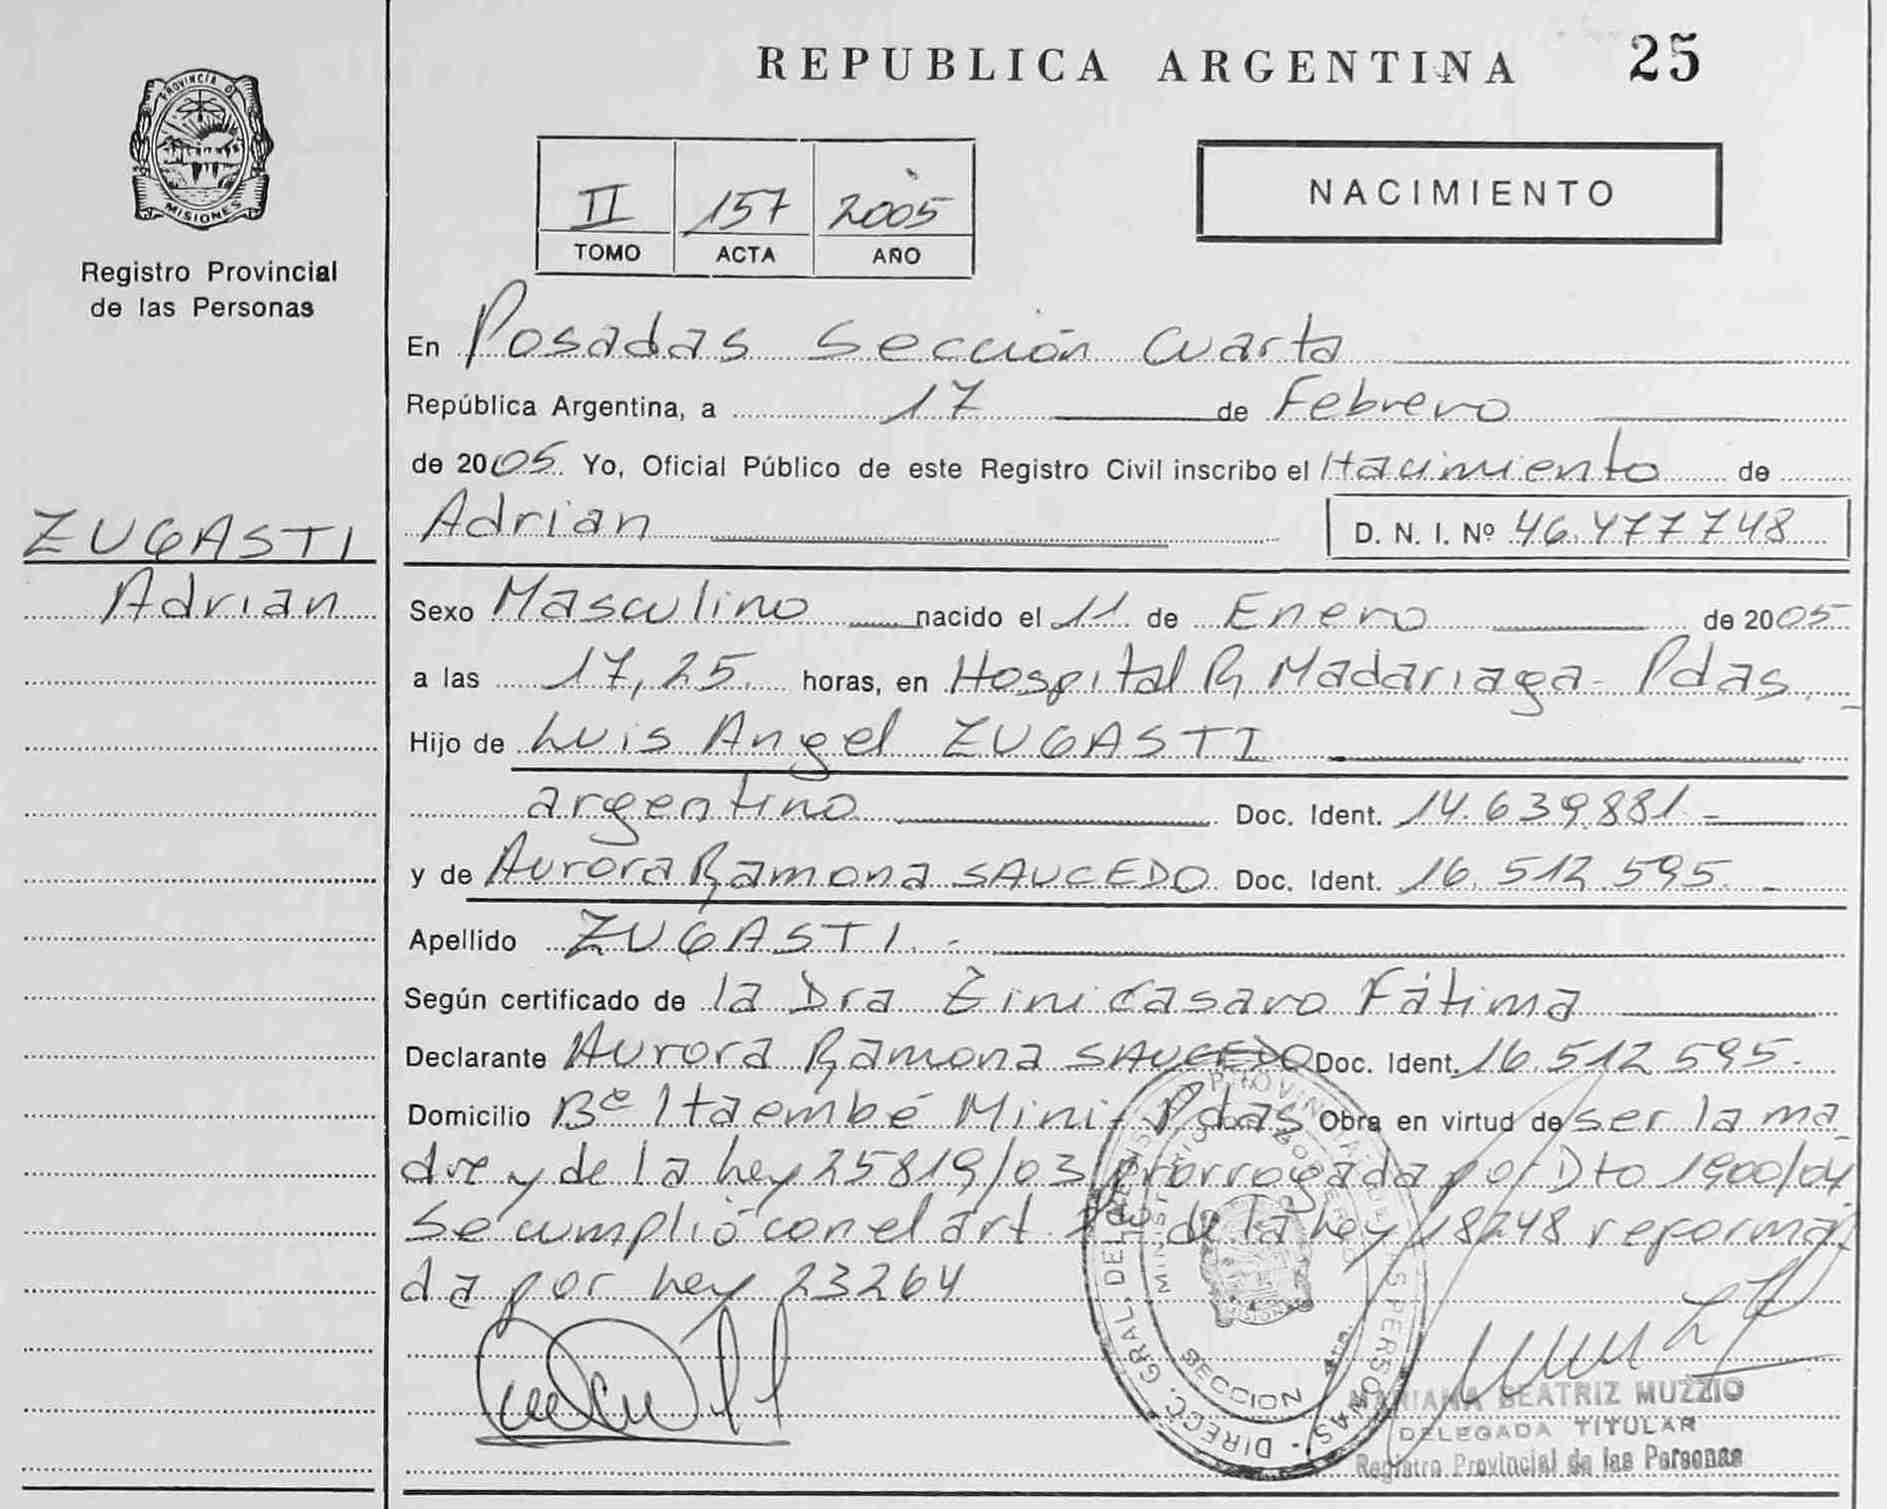 REPUBLICA ARGENTINA 25
PROVINCIA D
MISIONES
Registro Provincial
de las Personas
II 157 2005
TOMO ACTA AÑO
NACIMIENTO
En Posadas Sección Cuarta
República Argentina, a 17 de Febrero
de 2005. Yo, Oficial Público de este Registro Civil inscribo el Nacimiento de
ZUGASTI
Adrian
Adrian D. N. I. Nº 46.477748
Sexo Masculino nacido el 11 de Enero de 2005
a las 17,25. horas, en Hospital R Madariaga - Pdas.
Hijo de Luis Angel ZUGASTI
argentino Doc. Ident. 14.639.881.-
y de Aurora Ramona SAUCEDO Doc. Ident. 16.512.595.-
Apellido ZUGASTI.-
Según certificado de la Dra Fátima
Declarante Aurora Ramona SAUCEDO Doc. Ident. 16.512.595-
Domicilio Bº Itaembé Mini - Pdas Obra en virtud de ser la ma
dre y de la Ley 25819/03 prorrogada por Dto 1900/04
Se cumplió con el art. de la Ley 18248 reforma
da por Ley 23264
DIRECC. GRAL. DEL REGISTRO PROVINCIAL DE LAS PERSONAS
MINISTERIO DE GOBIERNO
SECCION
MARIANA BEATRIZ MUZZIO
DELEGADA TITULAR
Registro Provincial de las Personas